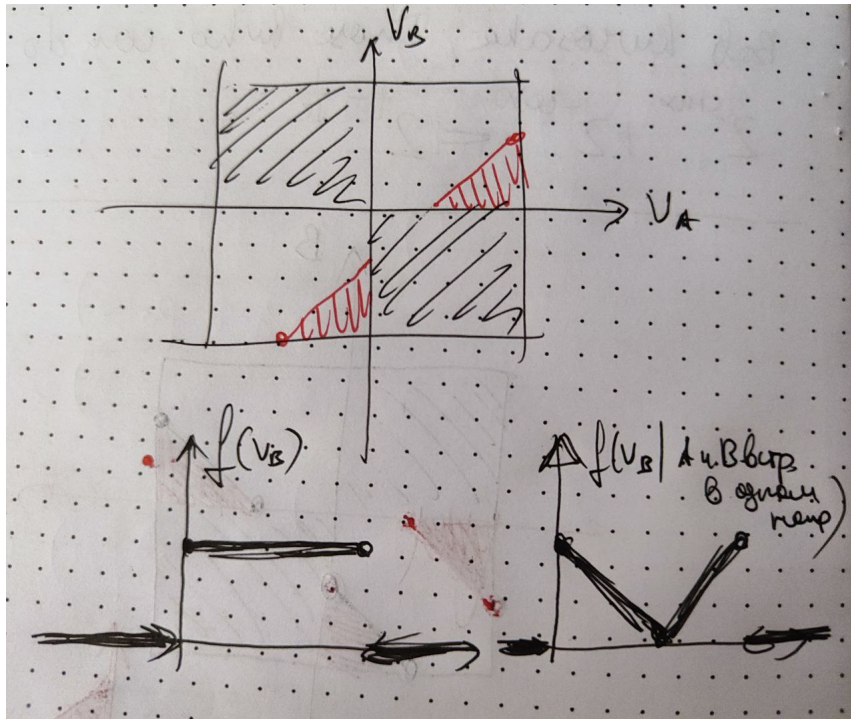 V_B
V_A
f(V_B)
f(V_B | A и B встр.
в одном
напр)